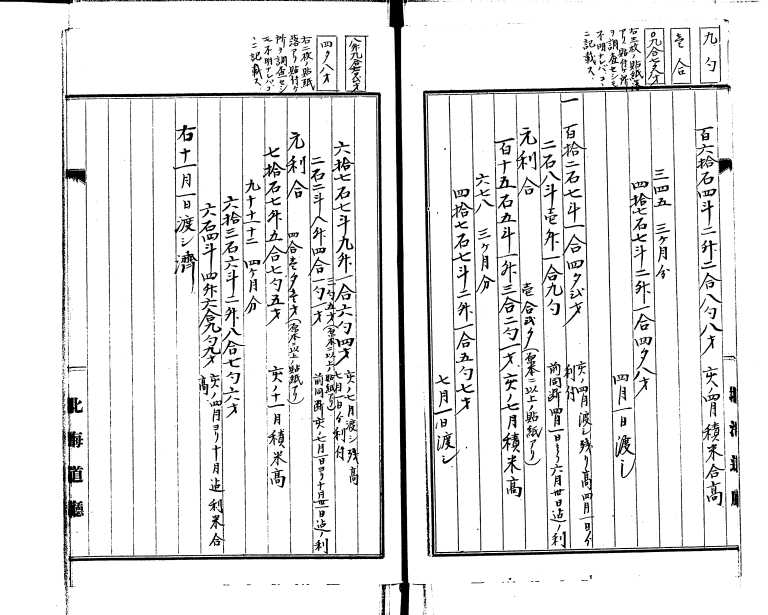 九勺
壱合
〇九合七夕八才
右三枚ノ貼紙落
アリ貼付ケ所
ヲ調査セシモ
不明ナレバコヽ
ニ記載ス
百六拾石四斗二升二合八勺八才 亥ノ四月積米合高
三四五 三ヶ月分
四拾七石七斗二升一合四夕八才 四月一日渡シ
一百拾二石七斗一合四夕弐才 亥ノ四月渡シ残り高四月一日ゟ利付
二石八斗壱升一合九勺 前同断四月一日ヨリ六月卅日迄ノ利
壱合弐夕(原本ニ以上ノ貼紙アリ)
元利合
百十五石五斗一升三合二勺一才 亥ノ七月積米高
六七八 三ヶ月分
四拾七石七斗二升一合五勺七才 七月一日渡シ
北海道廳
八升九合七夕弐才
四夕八才
右二枚ノ貼紙
落アリ貼付ケ
所ヲ調査セシ
モ不明ナレバコ
ヽニ記載ス
六拾七石七斗九升一合六勺四才 亥ノ七月渡シ残高七月一日ゟ利付
三勺五才(原本ニ以上ノ貼紙アリ)
二石二斗八升四合一勺一才 前同断亥ノ七月一日ヨリ十月卅一日迄ノ利
四合壱夕壱才(原本ニ以上ノ貼紙アリ)
元利合
七拾石七升五合七勺五才 亥ノ十一月積米高
九十十一十二 四ヶ月分
六拾三石六斗二升八合七勺六才
六石四斗四升六合九勺九才 亥ノ四月ヨリ十月迄利米合高
右十一月一日渡シ濟
北海道廳